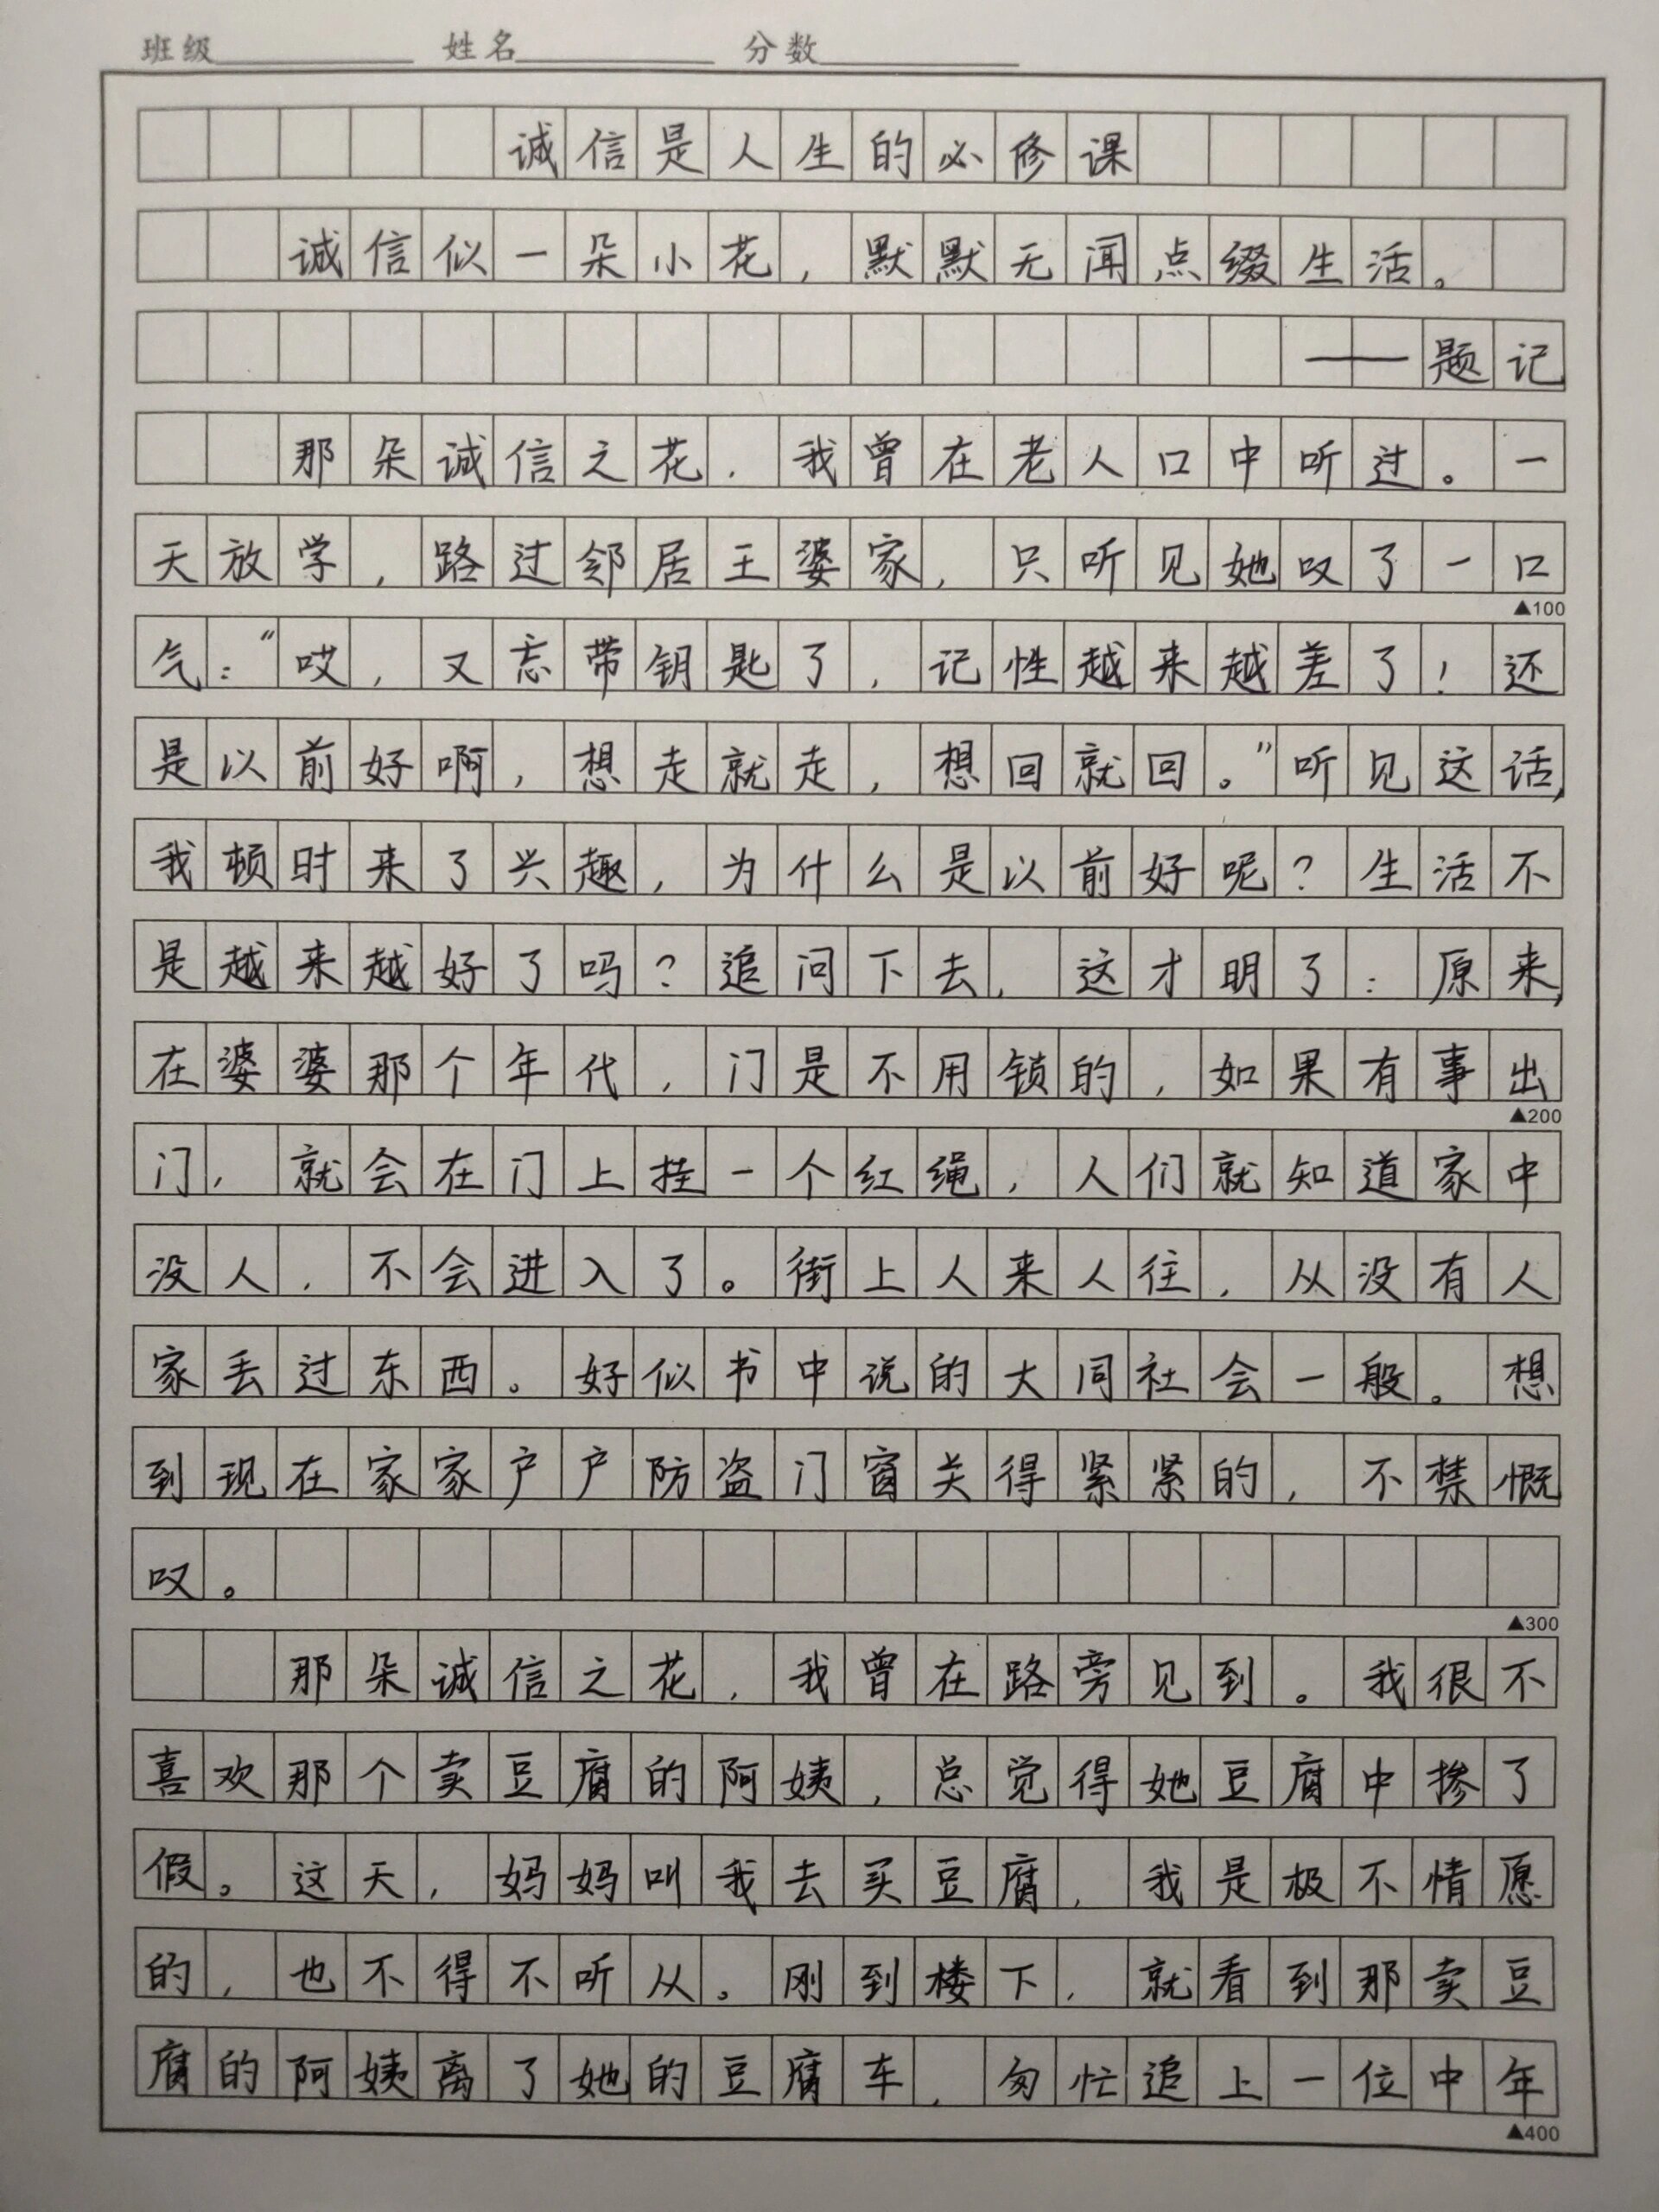 班级 姓名 分数
诚信是人生的必修课
诚信似一朵小花，默默无闻点缀生活。
——题记
那朵诚信之花，我曾在老人口中听过。一
天放学，路过邻居王婆家，只听见她叹了一口
▲100
气：“哎，又忘带钥匙了，记性越来越差了！还
是以前好啊，想走就走，想回就回。”听见这话，
我顿时来了兴趣，为什么是以前好呢？生活不
是越来越好了吗？追问下去，这才明了：原来，
在婆婆那个年代，门是不用锁的，如果有事出
▲200
门，就会在门上挂一个红绳，人们就知道家中
没人，不会进入了。街上人来人往，从没有人
家丢过东西。好似书中说的大同社会一般。想
到现在家家户户防盗门窗关得紧紧的，不禁慨
叹。
▲300
那朵诚信之花，我曾在路旁见到。我很不
喜欢那个卖豆腐的阿姨，总觉得她豆腐中掺了
假。这天，妈妈叫我去买豆腐，我是极不情愿
的，也不得不听从。刚到楼下，就看到那卖豆
腐的阿姨离了她的豆腐车，匆忙追上一位中年
▲400